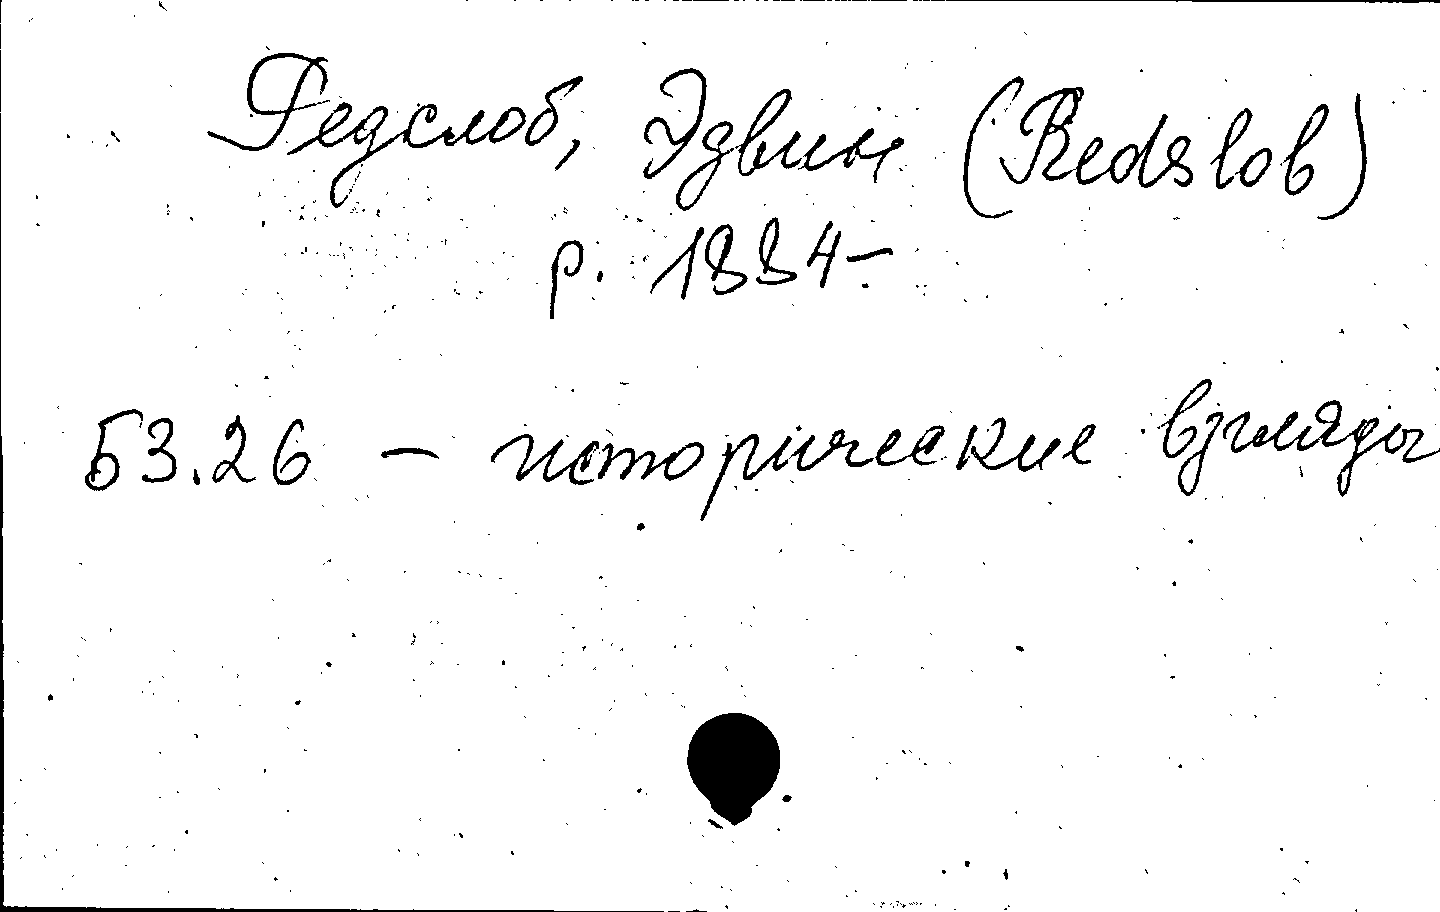 Редслоб, Эдвин (Redslob)
р. 1884-
53.26 - исторические взгляды